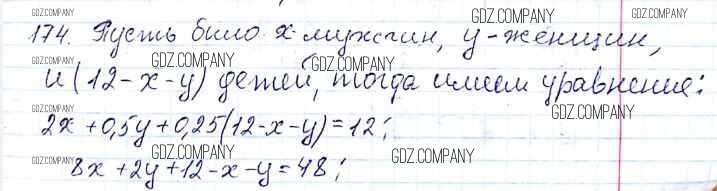 GDZ.COMPANY
174. Пусть было x мужчин, y-женщин,
GDZ.COMPANY GDZ.COMPANY
и (12-x-y) детей, тогда имеем уравнение:
GDZ.COMPANY GDZ.COMPANY
2x+0,5y+0,25(12-x-y)=12;
GDZ.COMPANY GDZ.COMPANY GDZ.COMPANY
8x+2y+12-x-y=48;
GDZ.COMPANY